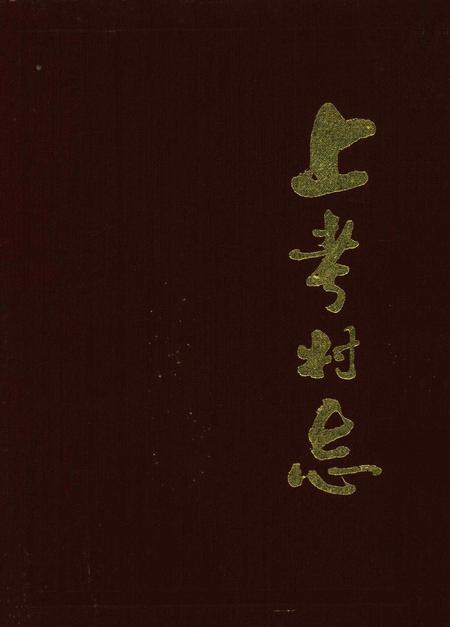 上考村志